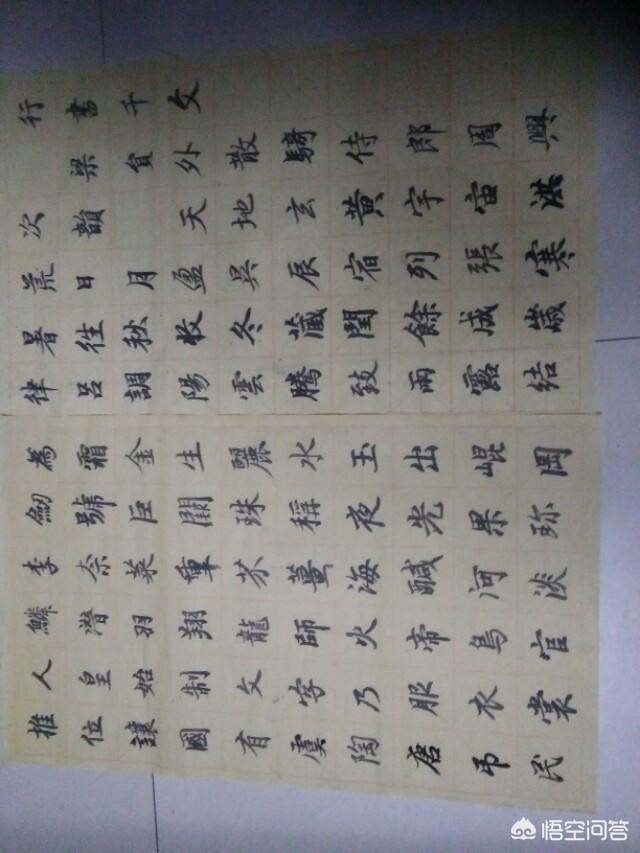 行書千文
梁員外散騎侍郎周興
次韻天地玄黃宇宙洪
荒日月盈昃辰宿列張寒
暑往秋收冬藏閏餘成歲
律呂調陽雲騰致雨露結
為霜金生麗水玉出崐岡
劒號巨闕珠稱夜光果珎
李柰菜重芥薑海鹹河淡
鱗潛羽翔龍師火帝鳥官
人皇始制文字乃服衣裳
推位讓國有虞陶唐弔民
悟空问答